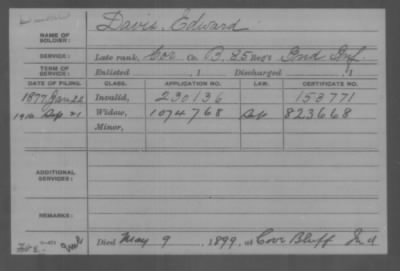 NAME OF SOLDIER: Davis, Edward
SERVICE: Late rank, Cor Co. B, 85 Reg't Ind Inf.
TERM OF SERVICE: Enlisted , 1 Discharged , 1
DATE OF FILING. CLASS. APPLICATION NO. LAW. CERTIFICATE NO.
1877 Jan 22 Invalid, 230136 153771
Sep 21 Widow, 1074768 823668
Minor,
ADDITIONAL SERVICES:
REMARKS:
Died May 9, 1899, at Bluff Ind